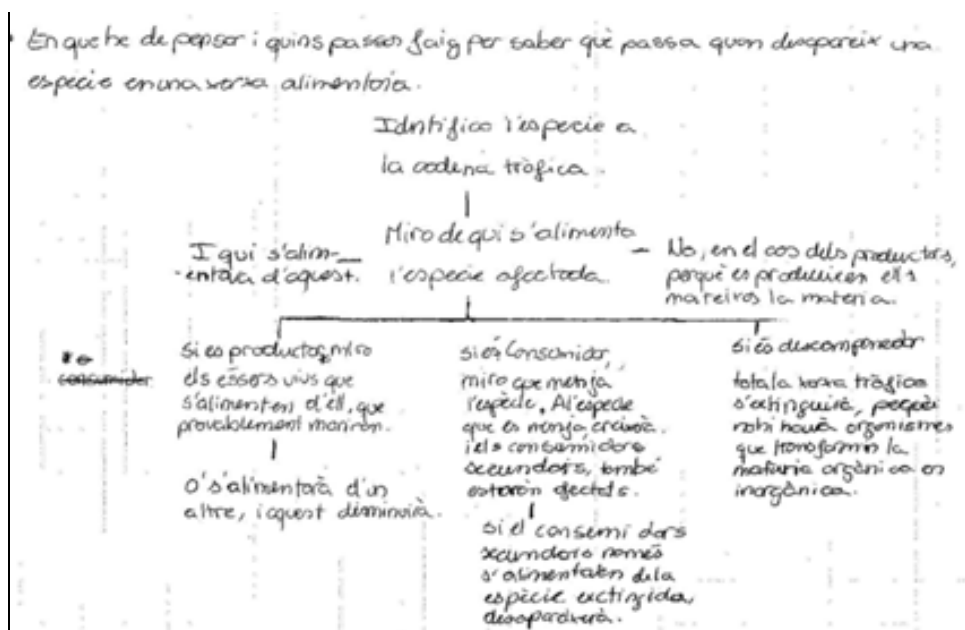 • En que he de pensar i quins passos faig per saber què passa quan desapareix una
especie en una xarxa alimentaria.
Identifico l'especie a
la cadena tròfica.
I qui s'alim-
-entaia d'aquest.
Miro de qui s'alimenta
l'especie afectada.
No, en el cas dels productors,
perquè es produeixen ells
mateixos la materia.
consumidor
Si es productor, miro
els éssers vius que
s'alimenten d'ell, que
provablement moriran.
O s'alimentarà d'un
altre, i aquest disminuirà.
si és Consumidor,
miro que menja
l'espècie, A l'especie
que es menja creixerà.
i els consumidors
secundars, també
estaràn afectats.
si el consumidors
secundars només
s'alimentaben de la
espècie extingida,
desapareixerà.
Si és descomponedor
tota la xarxa tròfica
s'extinguirà, perquè
no hi haurà organismes
que transformin la
matèria orgànica en
inorgànica.